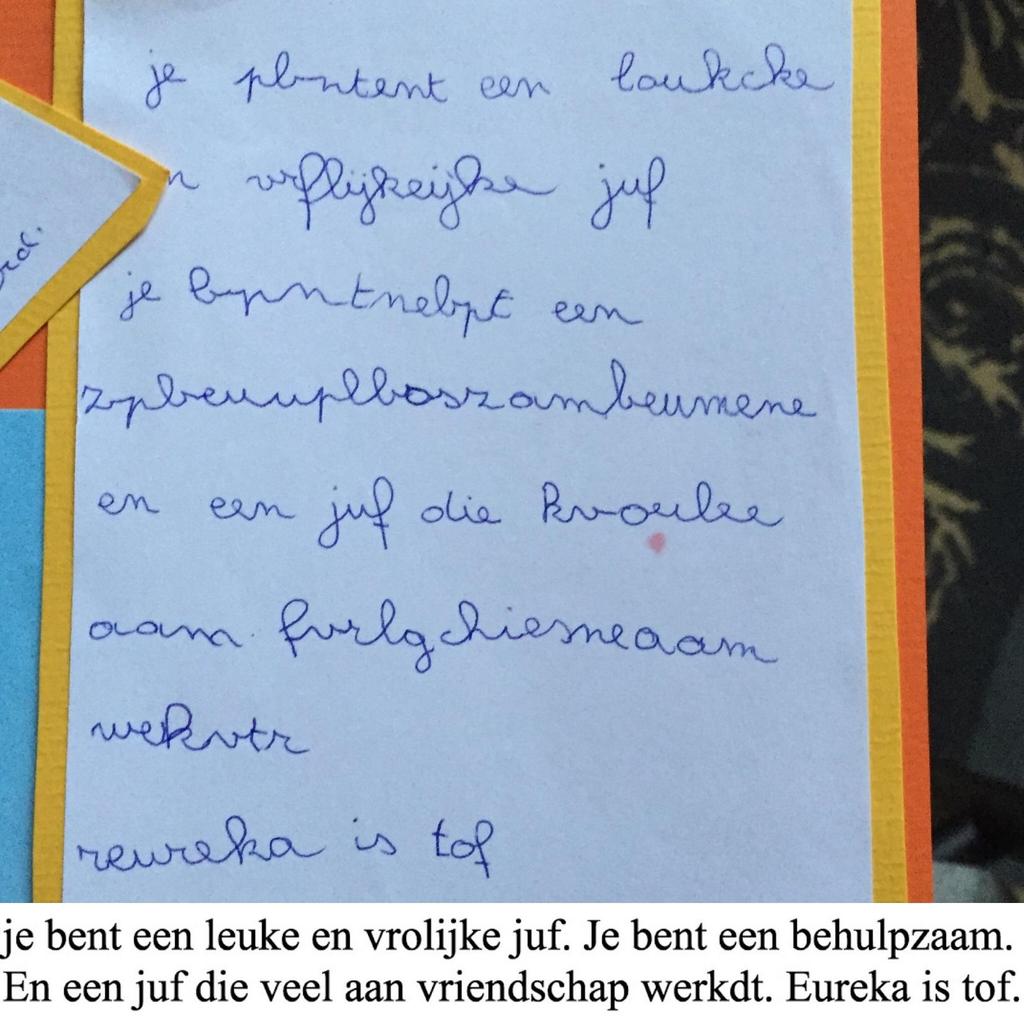 je plntent een loukcke
n vrflijkeijke juf
rd.
je bypntnebpt een
zpbeuuplboszambeumene
en een juf die kvoulee
aam fvrlgchiesmeaam
wekvtr
reureka is tof
je bent een leuke en vrolijke juf. Je bent een behulpzaam.
En een juf die veel aan vriendschap werkdt. Eureka is tof.